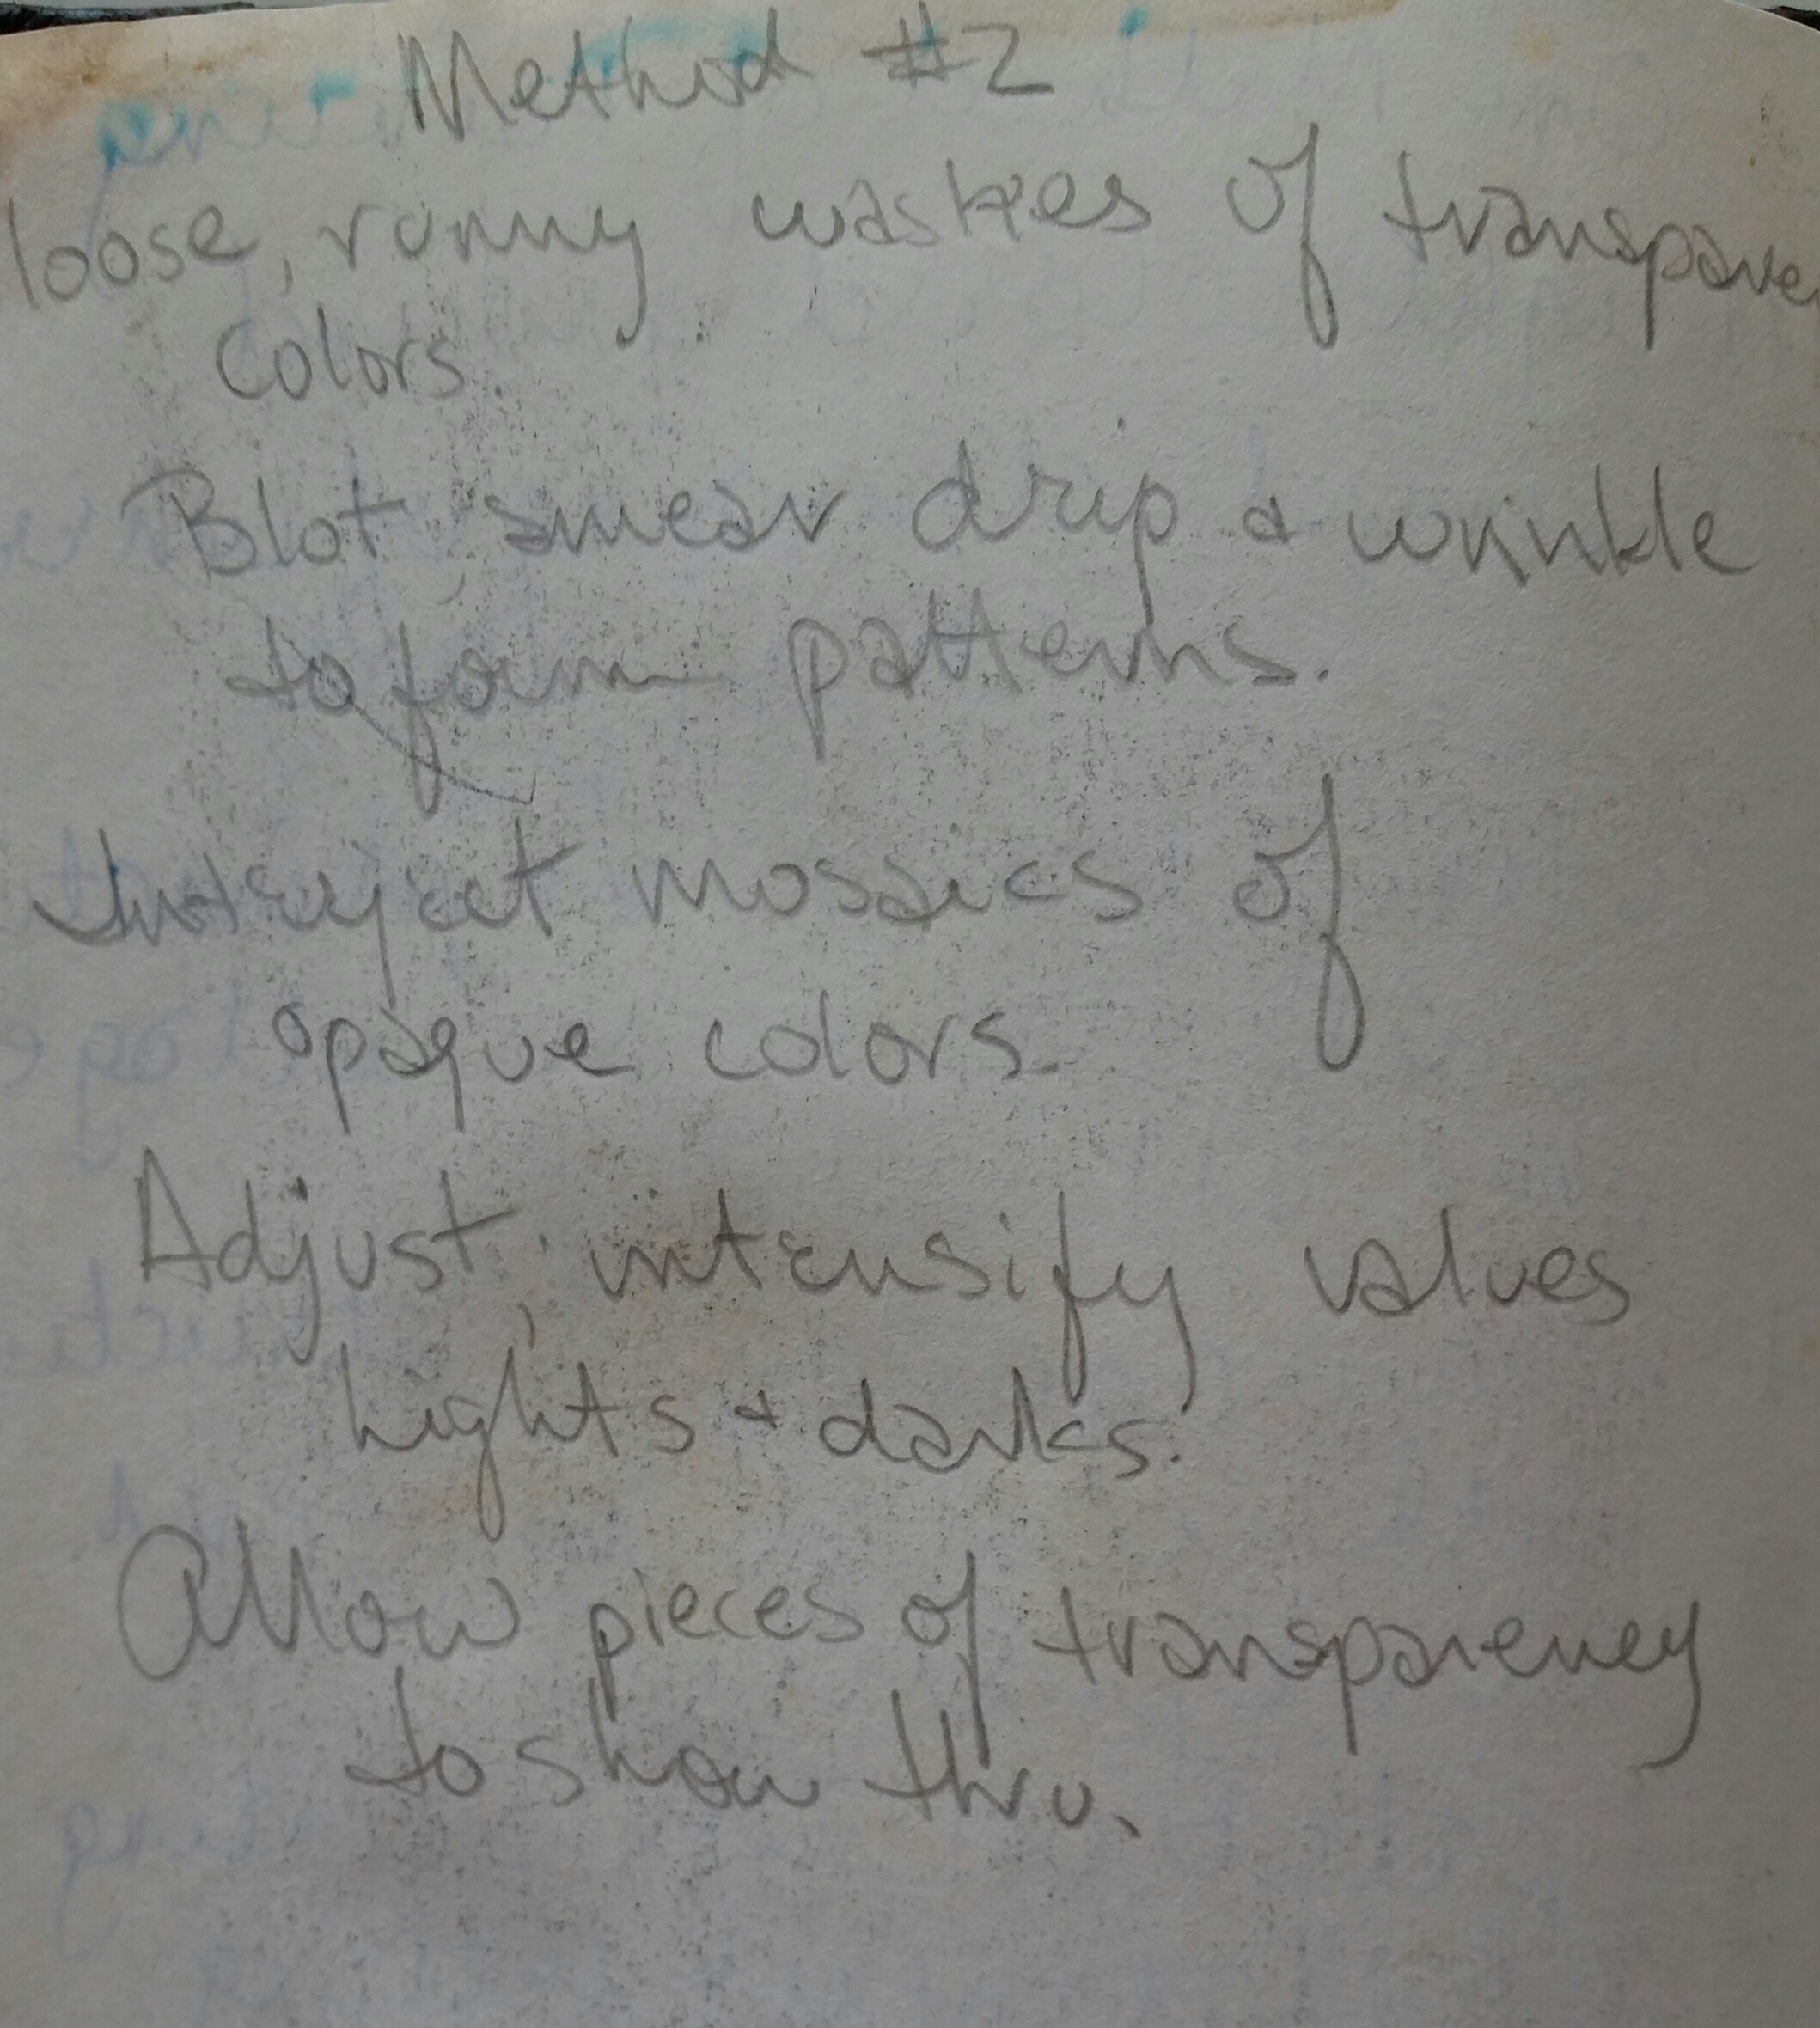 Method #2
loose, runny washes of transparen
colors.
Blot smear drip & wrinkle
to form patterns.
Interject mosaics of
opaque colors.
Adjust, intensify values
lights + darks.
Allow pieces of transparency
to show thru.